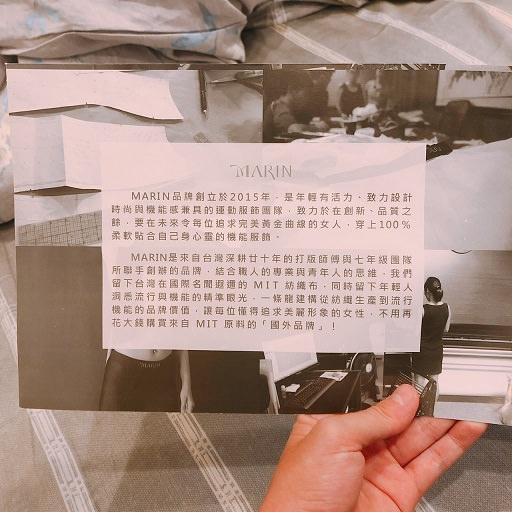 MARIN
MARIN品牌創立於2015年，是年輕有活力、致力設計
時尚與機能感兼具的運動服飾團隊，致力於在創新、品質之
餘，要在未來令每位追求完美黃金曲線的女人，穿上100%
柔軟貼合自己身心靈的機能服飾。
MARIN是來自台灣深耕廿十年的打版師傅與七年級團隊
所聯手創辦的品牌，結合職人的專業與青年人的思維，我們
留下台灣在國際名聞遐邇的 MIT 紡織布，同時留下年輕人
洞悉流行與機能的精準眼光，一條龍建構從紡織生產到流行
機能的品牌價值，讓每位懂得追求美麗形象的女性，不用再
花大錢購買來自 MIT 原料的「國外品牌」！
MARIN